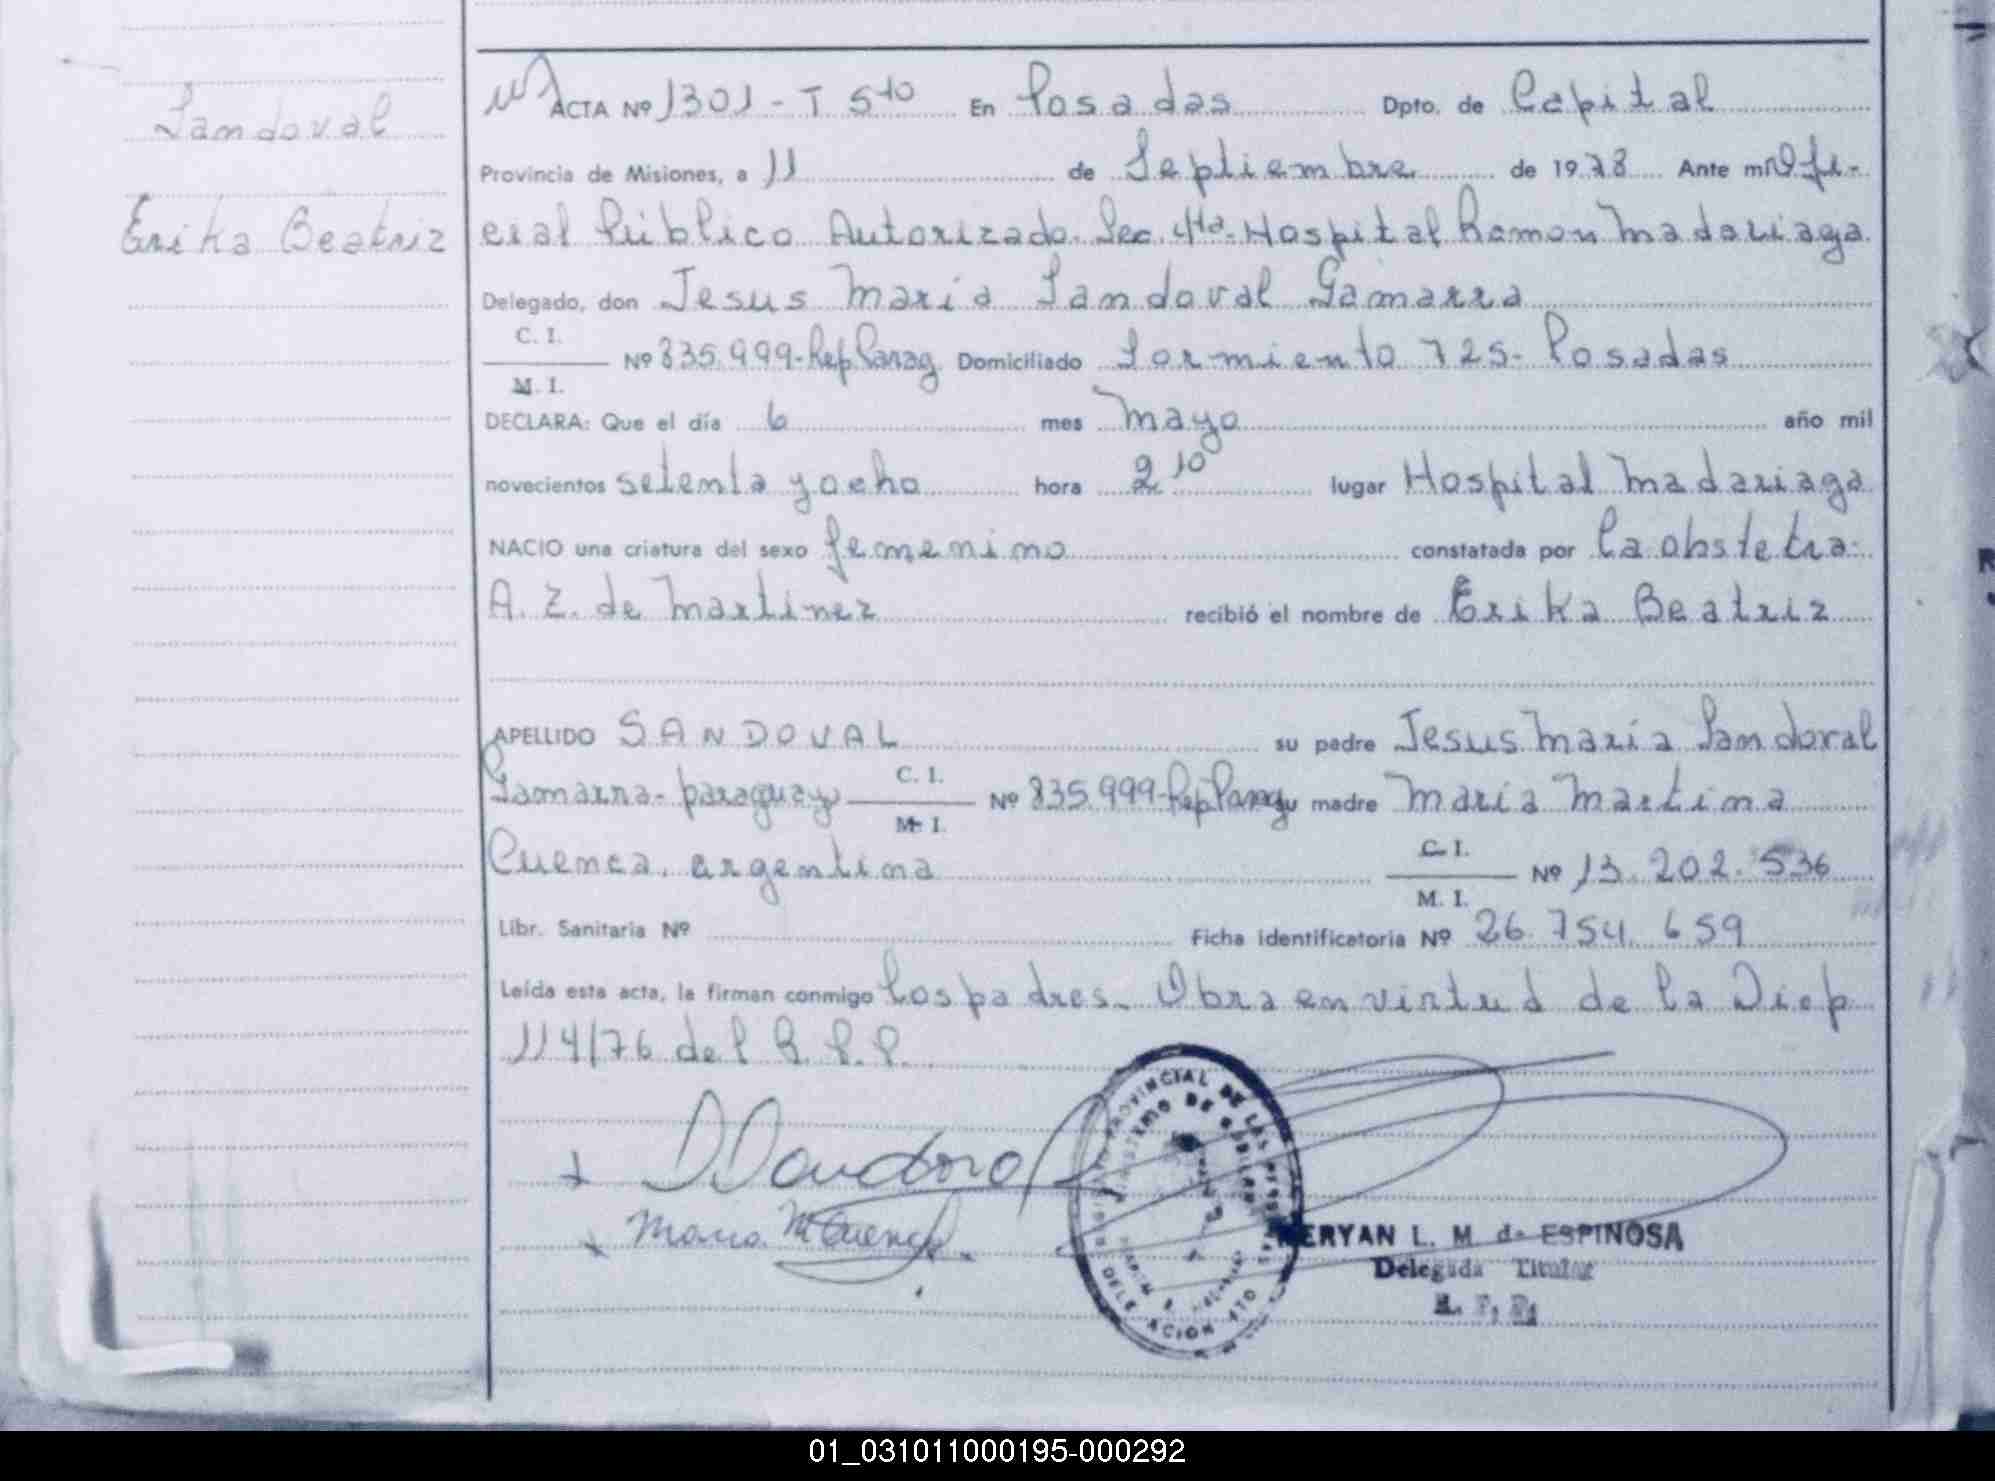 Sandoval
Erika Beatriz
ACTA Nº 1301 - T 5to En Posadas Dpto. de Capital
Provincia de Misiones, a 11 de Septiembre de 1978 Ante mi Ofi-
cial Público Autorizado. Sec. 4ta. Hospital Ramon Madariaga
Delegado, don Jesus Maria Sandoval Gamarra
C. I.
M. I.
Nº 835.999-Rep Parag Domiciliado Sarmiento 725- Posadas
DECLARA: Que el día 6 mes Mayo año mil
novecientos setenta y ocho hora 2 10 lugar Hospital Madariaga
NACIO una criatura del sexo femenino constatada por la obstetra
A. Z. de Martinez recibió el nombre de Erika Beatriz
APELLIDO SANDOVAL su padre Jesus Maria Sandoval
Gamarra- paraguayo C. I. M. I. Nº 835.999-Rep Parag su madre Maria Martina
Cuenca, argentina C. I. M. I. Nº 13.202.536
Libr. Sanitaria Nº Ficha identificatoria Nº 26.754.659
Leída esta acta, la firman conmigo los padres. Obra en virtud de la Disp
114/76 del R.P.P.
Maria M Cuenca
PROVINCIAL DE LAS
DELEGACION 4TO
MERYAN L. M de ESPINOSA
Delegada Titular
01_031011000195-000292